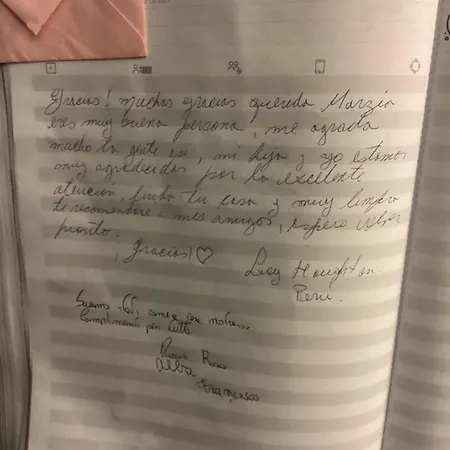 Gracias! muchas gracias querida Marzia
eres muy buena persona, me agrada
mucho la gente asi, mi hija y yo estamos
muy agradecidas por la excelente
atención, linda tu casa y muy limpia
te recomendare a mis amigos, espero volver
pronto.
¡Gracias! ♡ Lucy Houghton
Peru.
Siamo stati come a casa nostra
Complimenti per tutto
Rosa
Alba
Francesco